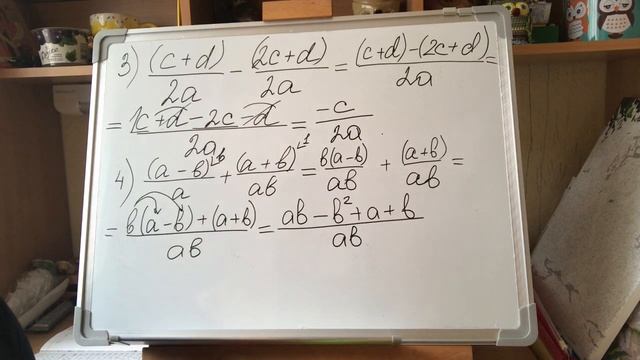 3) (c+d)/2a - (2c+d)/2a = (c+d)-(2c+d)/2a =
= 1c+d-2c-d/2a = -c/2a
4) (a-b)⌊b/a + (a+b)⌊1/ab = b(a-b)/ab + (a+b)/ab =
= b(a-b)+(a+b)/ab = ab-b²+a+b/ab